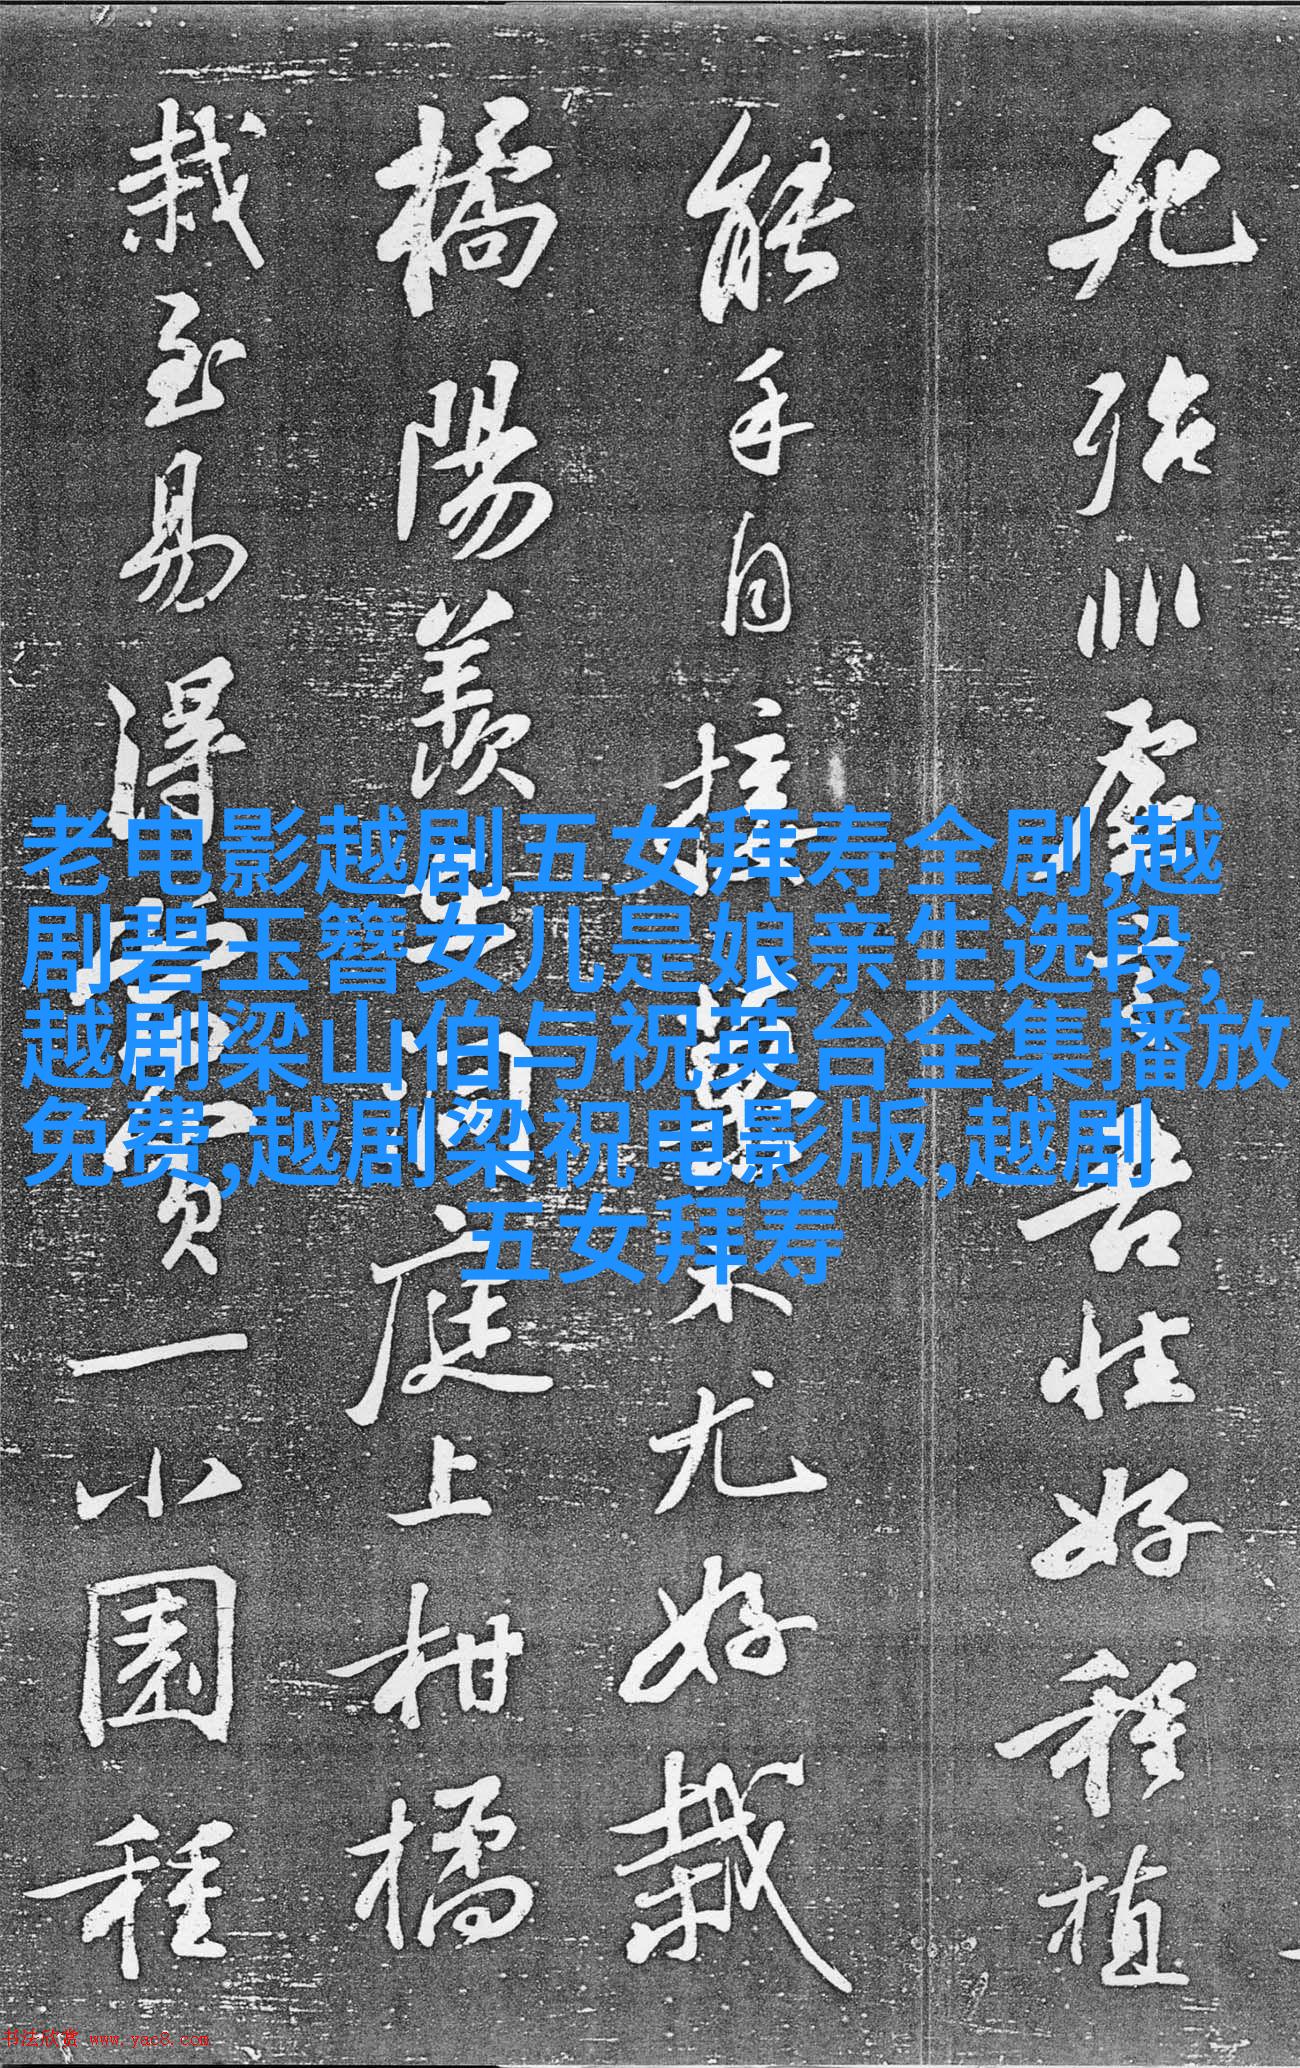 死殆非虚吾性好種植
能手自接菓木尤好栽
橘陽羨洞庭上柑橘
栽至易得當買一小園種
老电影越剧五女拜寿全剧,越
剧碧玉簪女儿是娘亲生选段,
越剧梁山伯与祝英台全集播放
免费,越剧梁祝电影版,越剧
五女拜寿
书法欣赏 www.yac8.com